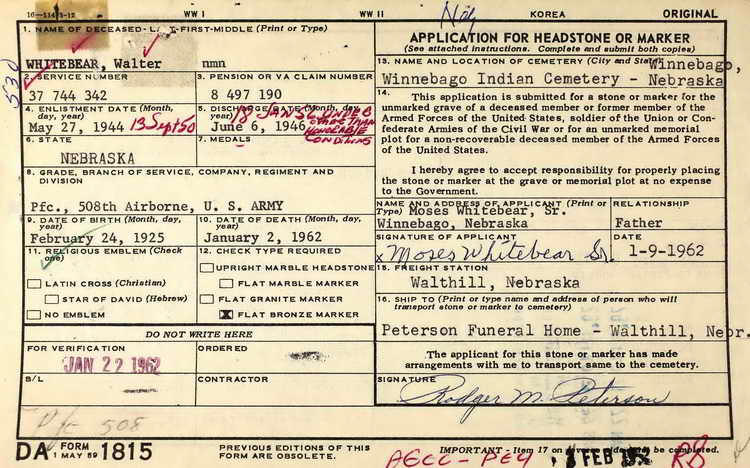 16—11453-12 WW I WW II KOREA ORIGINAL
1. NAME OF DECEASED-LAST-FIRST-MIDDLE (Print or Type)
WHITEBEAR, Walter nmn
530
2. SERVICE NUMBER
37 744 342
3. PENSION OR VA CLAIM NUMBER
8 497 190
4. ENLISTMENT DATE (Month, day, year)
May 27, 1944 13 Sept 50
5. DISCHARGE DATE (Month, day, year)
June 6, 1946
18 JAN 51 UNDER
OTHER THAN
HONORABLE
CONDITIONS
6. STATE
NEBRASKA
7. MEDALS
8. GRADE, BRANCH OF SERVICE, COMPANY, REGIMENT AND
DIVISION
Pfc., 508th Airborne, U. S. ARMY
9. DATE OF BIRTH (Month, day, year)
February 24, 1925
10. DATE OF DEATH (Month, day, year)
January 2, 1962
11. RELIGIOUS EMBLEM (Check one)
LATIN CROSS (Christian)
STAR OF DAVID (Hebrew)
NO EMBLEM
12. CHECK TYPE REQUIRED
UPRIGHT MARBLE HEADSTONE
FLAT MARBLE MARKER
FLAT GRANITE MARKER
X FLAT BRONZE MARKER
DO NOT WRITE HERE
FOR VERIFICATION
JAN 22 1962
ORDERED
B/L
CONTRACTOR
Pfc 508
APPLICATION FOR HEADSTONE OR MARKER
(See attached instructions. Complete and submit both copies)
13. NAME AND LOCATION OF CEMETERY (City and State) Winnebago,
Winnebago Indian Cemetery - Nebraska
14.
This application is submitted for a stone or marker for the
unmarked grave of a deceased member or former member of the
Armed Forces of the United States, soldier of the Union or Con-
federate Armies of the Civil War or for an unmarked memorial
plot for a non-recoverable deceased member of the Armed Forces
of the United States.
I hereby agree to accept responsibility for properly placing
the stone or marker at the grave or memorial plot at no expense
to the Government.
NAME AND ADDRESS OF APPLICANT (Print or Type) Moses Whitebear, Sr.
Winnebago, Nebraska
RELATIONSHIP
Father
SIGNATURE OF APPLICANT
x Moses Whitebear Sr.
DATE
1-9-1962
15. FREIGHT STATION
Walthill, Nebraska
16. SHIP TO (Print or type name and address of person who will
transport stone or marker to cemetery)
Peterson Funeral Home - Walthill, Nebr.
The applicant for this stone or marker has made
arrangements with me to transport same to the cemetery.
SIGNATURE
Rodger M. Peterson
DA FORM 1 MAY 59 1815
PREVIOUS EDITIONS OF THIS
FORM ARE OBSOLETE.
IMPORTANT - Item 17 on reverse side must be completed.
FEB